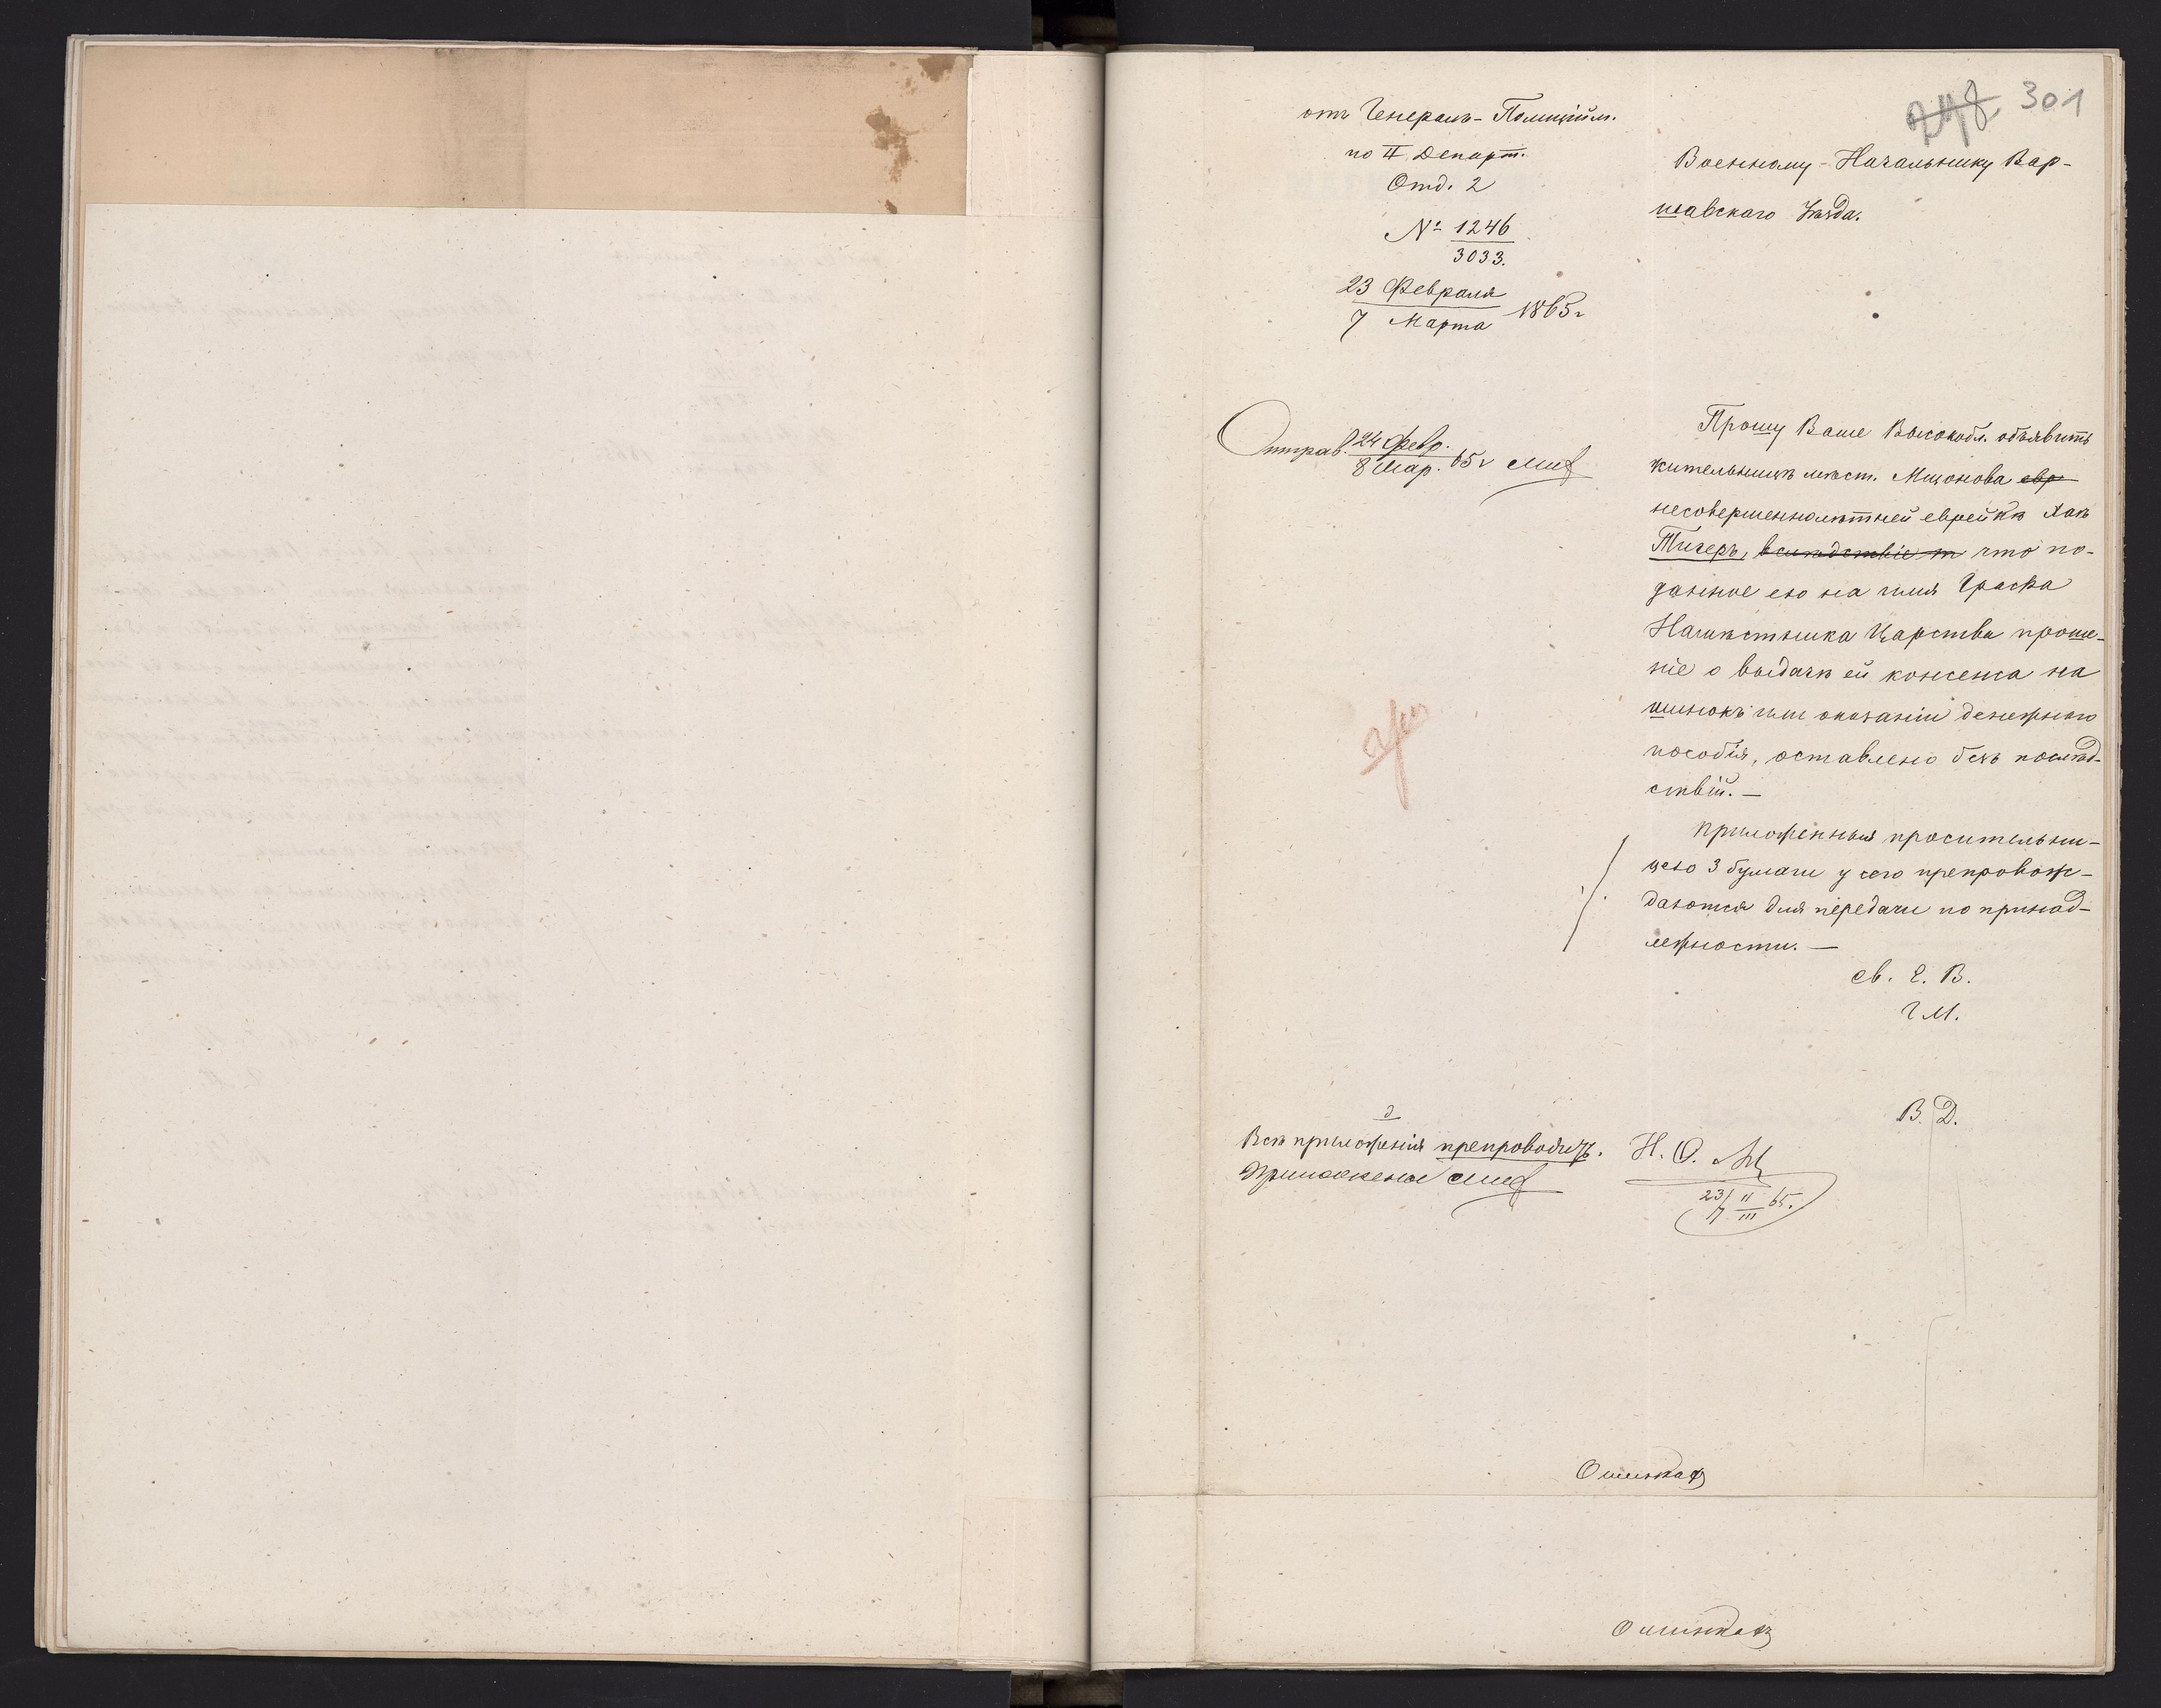 301
248
отъ Генералъ-Полиційм.
по II Департ.
Отд. 2
№ 1246
3033.
23 Февраля
7 Марта 1865 г
Военному-Начальнику Вар-
шавскаго Уѣзда.
Отправ. 24 Февр.
8 Мар. 65 г
Прошу Ваше Высокобл. объявить
жительницѣ мѣст. Мщонова евр
несовершеннолѣтней еврейкѣ Хаѣ
Тигеръ, вслѣдствіе т что по-
данное ею на имя Графа
Намѣстника Царства проше-
ніе о выдачѣ ей консенса на
шинокъ или оказаніи денежнаго
пособія, оставлено безъ послѣд-
ствій. —
Приложенныя просительни-
цею 3 бумаги у сего препровож-
даются для передачи по принад-
лежности. —
св. Е. В.
Г М.
В. Д.
Всѣ приложенія препроводить.
Приложенія
Н. О.
23/7 II/III 65.